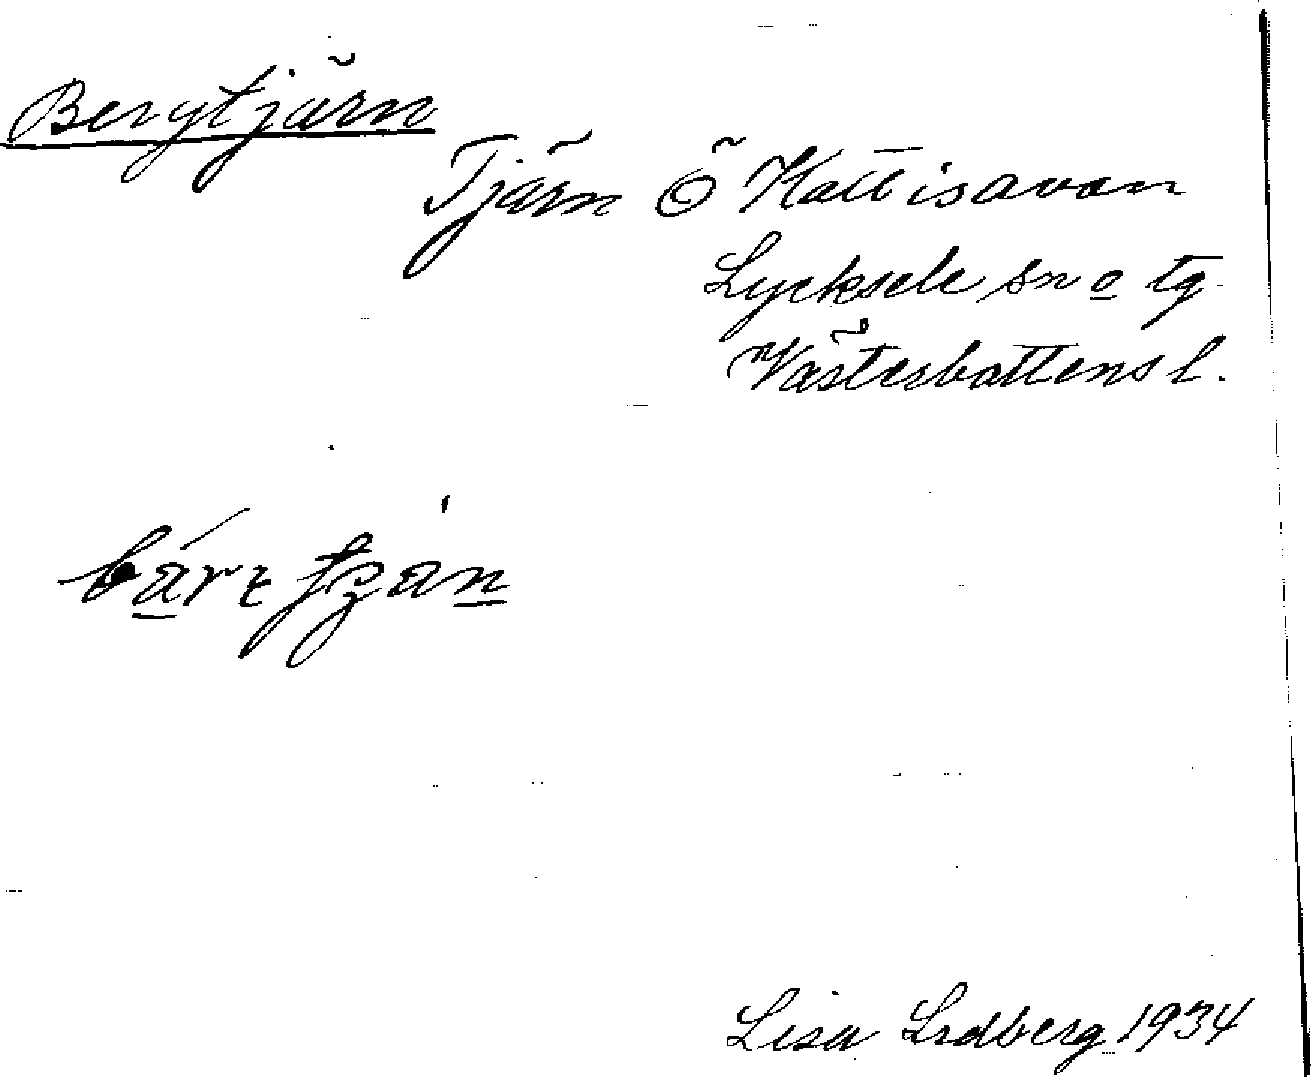 Bergtjärn
Tjärn Ö Kattisavan
Lycksele sn o tg
Västerbottens l.
Lisa Lidberg 1934